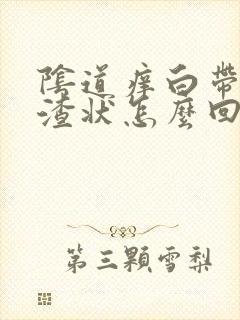 陰道痒白帶
渣状怎麼回
第三顆雪梨